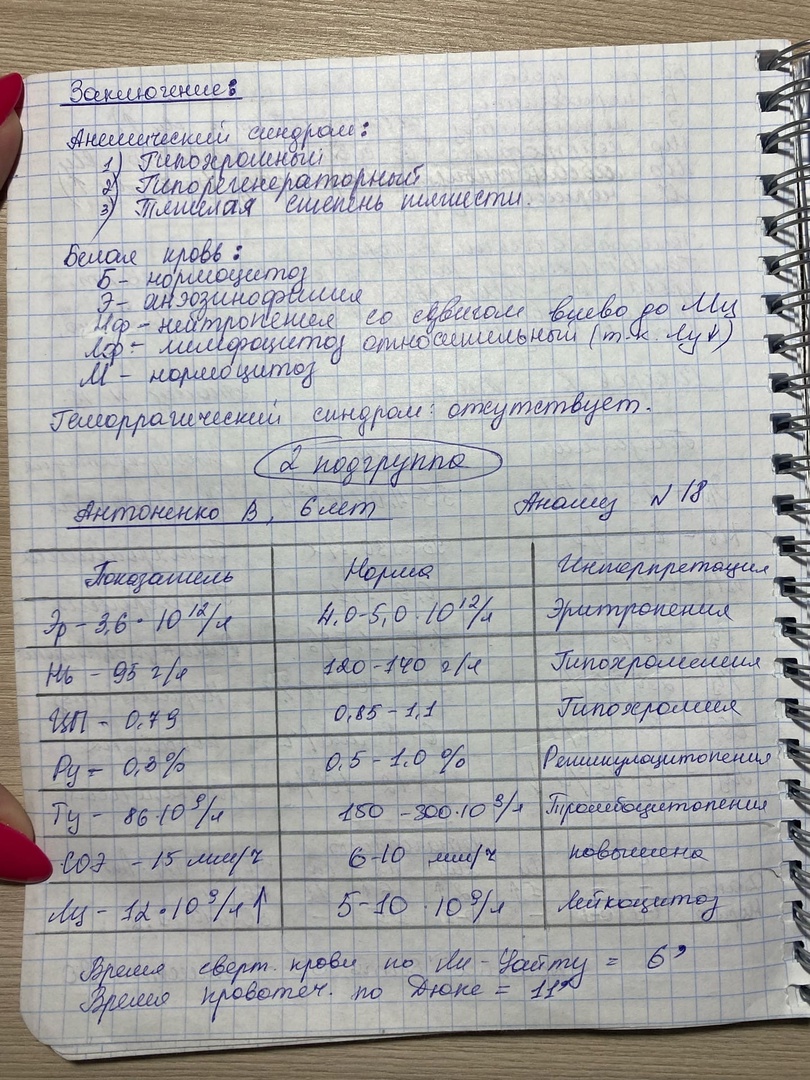 Заключение:
Анемический синдром:
1) Гипохромный
2) Гипорегенераторный
3) Тяжелая степень тяжести.
Белая кровь:
Б - нормоцитоз
Э - анэозинофилия
Нф - нейтропения со сдвигом влево до Мц
Лф - лимфоцитоз относительный (т.к. Лц↓)
М - нормоцитоз
Геморрагический синдром: отсутствует.
2 подгруппа
Антоненко В, 6 лет Анализ N 18
Показатель Норма Интерпретация
Эр - 3,6 · 10¹²/л 4,0-5,0 · 10¹²/л Эритропения
Hb - 95 г/л 120-140 г/л Гипохромемия
ЦП - 0,79 0,85-1,1 Гипохромия
Рц = 0,3% 0,5-1,0 % Ретикулоцитопения
Тц - 86·10⁹/л 150-300·10⁹/л Тромбоцитопения
СОЭ - 15 мм/ч 6-10 мм/ч повышена
Лц - 12·10⁹/л ↑ 5-10 · 10⁹/л Лейкоцитоз
Время сверт. крови по Ли-Уайту = 6'
Время кровотеч. по Дюке = 11'